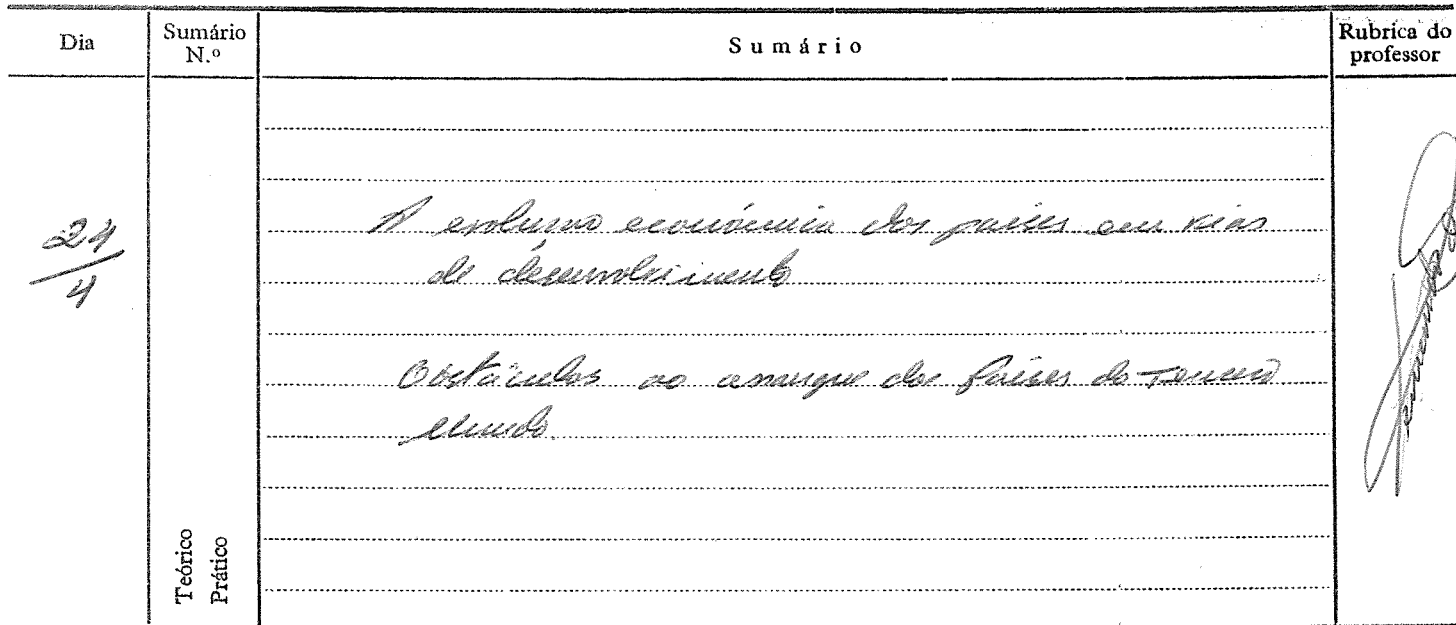 Dia
Sumário N.º
Sumário
Rubrica do professor
24/4
A evolução económica dos países em vias
de desenvolvimento
Obstáculos ao arranque dos Países do Terceiro
Mundo.
Teórico
Prático